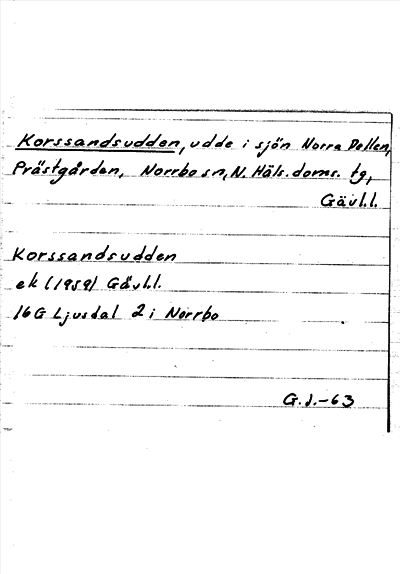 Korssandsudden, udde i sjön Norra Dellen,
Prästgården, Norrbo sn, N. Häls. doms. tg,
Gävl.l.
Korssandsudden
ek (1959) Gävl.l.
16G Ljusdal 2 i Norrbo
G.J.-63